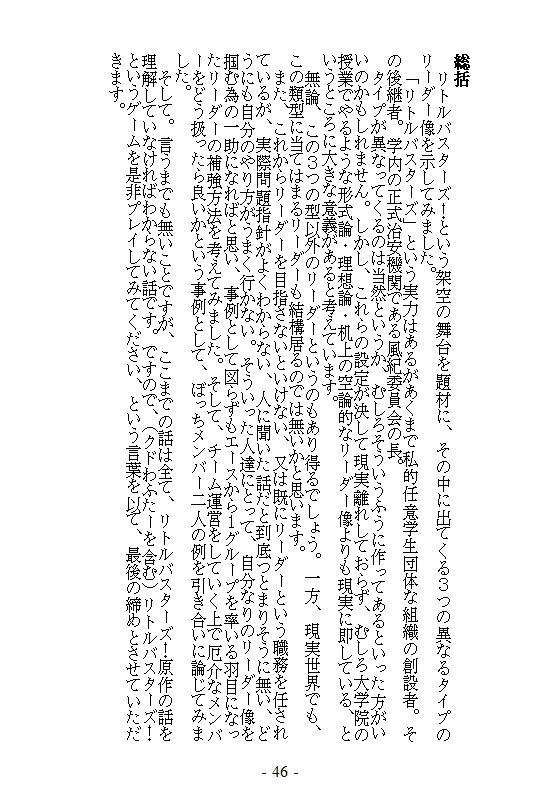 総括
　リトルバスターズ！という架空の舞台を題材に、その中に出てくる３つの異なるタイプの
リーダー像を示してみました。
　「リトルバスターズ」という実力はあるがあくまで私的任意学生団体な組織の創設者。そ
の後継者。学内の正式治安機関である風紀委員会の長。
　タイプが異なってくるのは当然というか、むしろそういうふうに作ってあるといった方がい
いのかもしれません。しかし、これらの設定が決して現実離れしておらず、むしろ大学院の
授業でやるような形式論・理想論・机上の空論的なリーダー像よりも現実に即している、と
いうところに大きな意義があると考えています。
　無論、この３つの型以外のリーダーというのもあり得るでしょう。一方、現実世界でも、
この類型に当てはまるリーダーも結構居るのでは無いかと思います。
　また、これからリーダーを目指さないといけない、又は既にリーダーという職務を任され
ているが、実際問題指針がよくわからない、人に聞いた話だと到底つとまりそうに無い、ど
うにも自分のやり方がうまく行かない。そういった人達にとって、自分なりのリーダー像を
掴む為の一助になればと思い、事例として図らずもエースから１グループを率いる羽目になっ
たリーダーの補強方法を考えてみました。そして、チーム運営をしていく上で厄介なメンバ
ーをどう扱ったら良いかという事例として、ぼっちメンバー二人の例を引き合いに論じてみま
した。
　そして。言うまでも無いことですが、ここまでの話は全て、リトルバスターズ！原作の話を
理解していなければわからない話です。ですので、（クドわふたーを含む）リトルバスターズ！
というゲームを是非プレイしてみてください、という言葉を以て、最後の締めとさせていただ
きます。
- 46 -